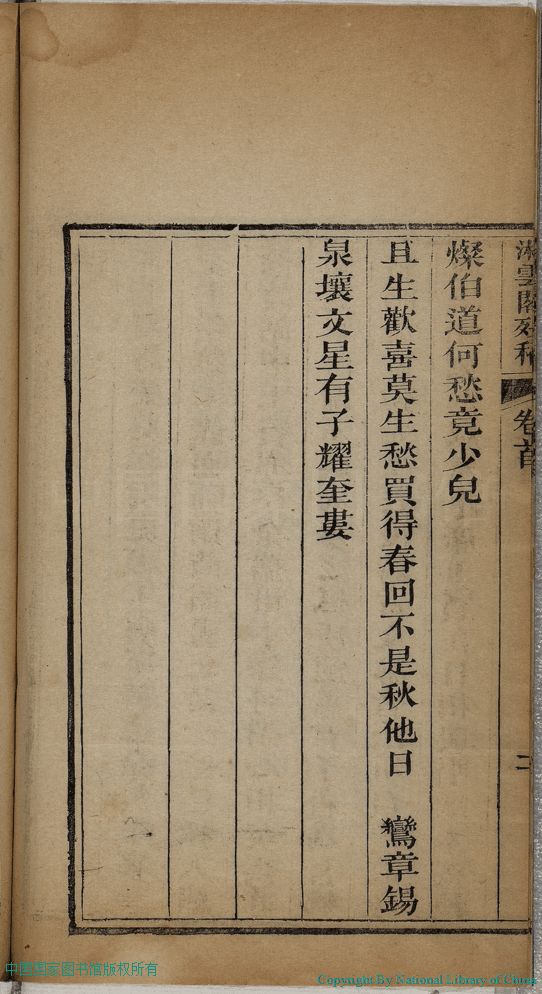 雲閣
卷首
二
燦伯道何愁竟少兒
且生歡喜莫生愁買得春回不是秋他日　鸞章錫
泉壤文星有子耀奎婁
中国国家图书馆版权所有
Copyright By National Library of China